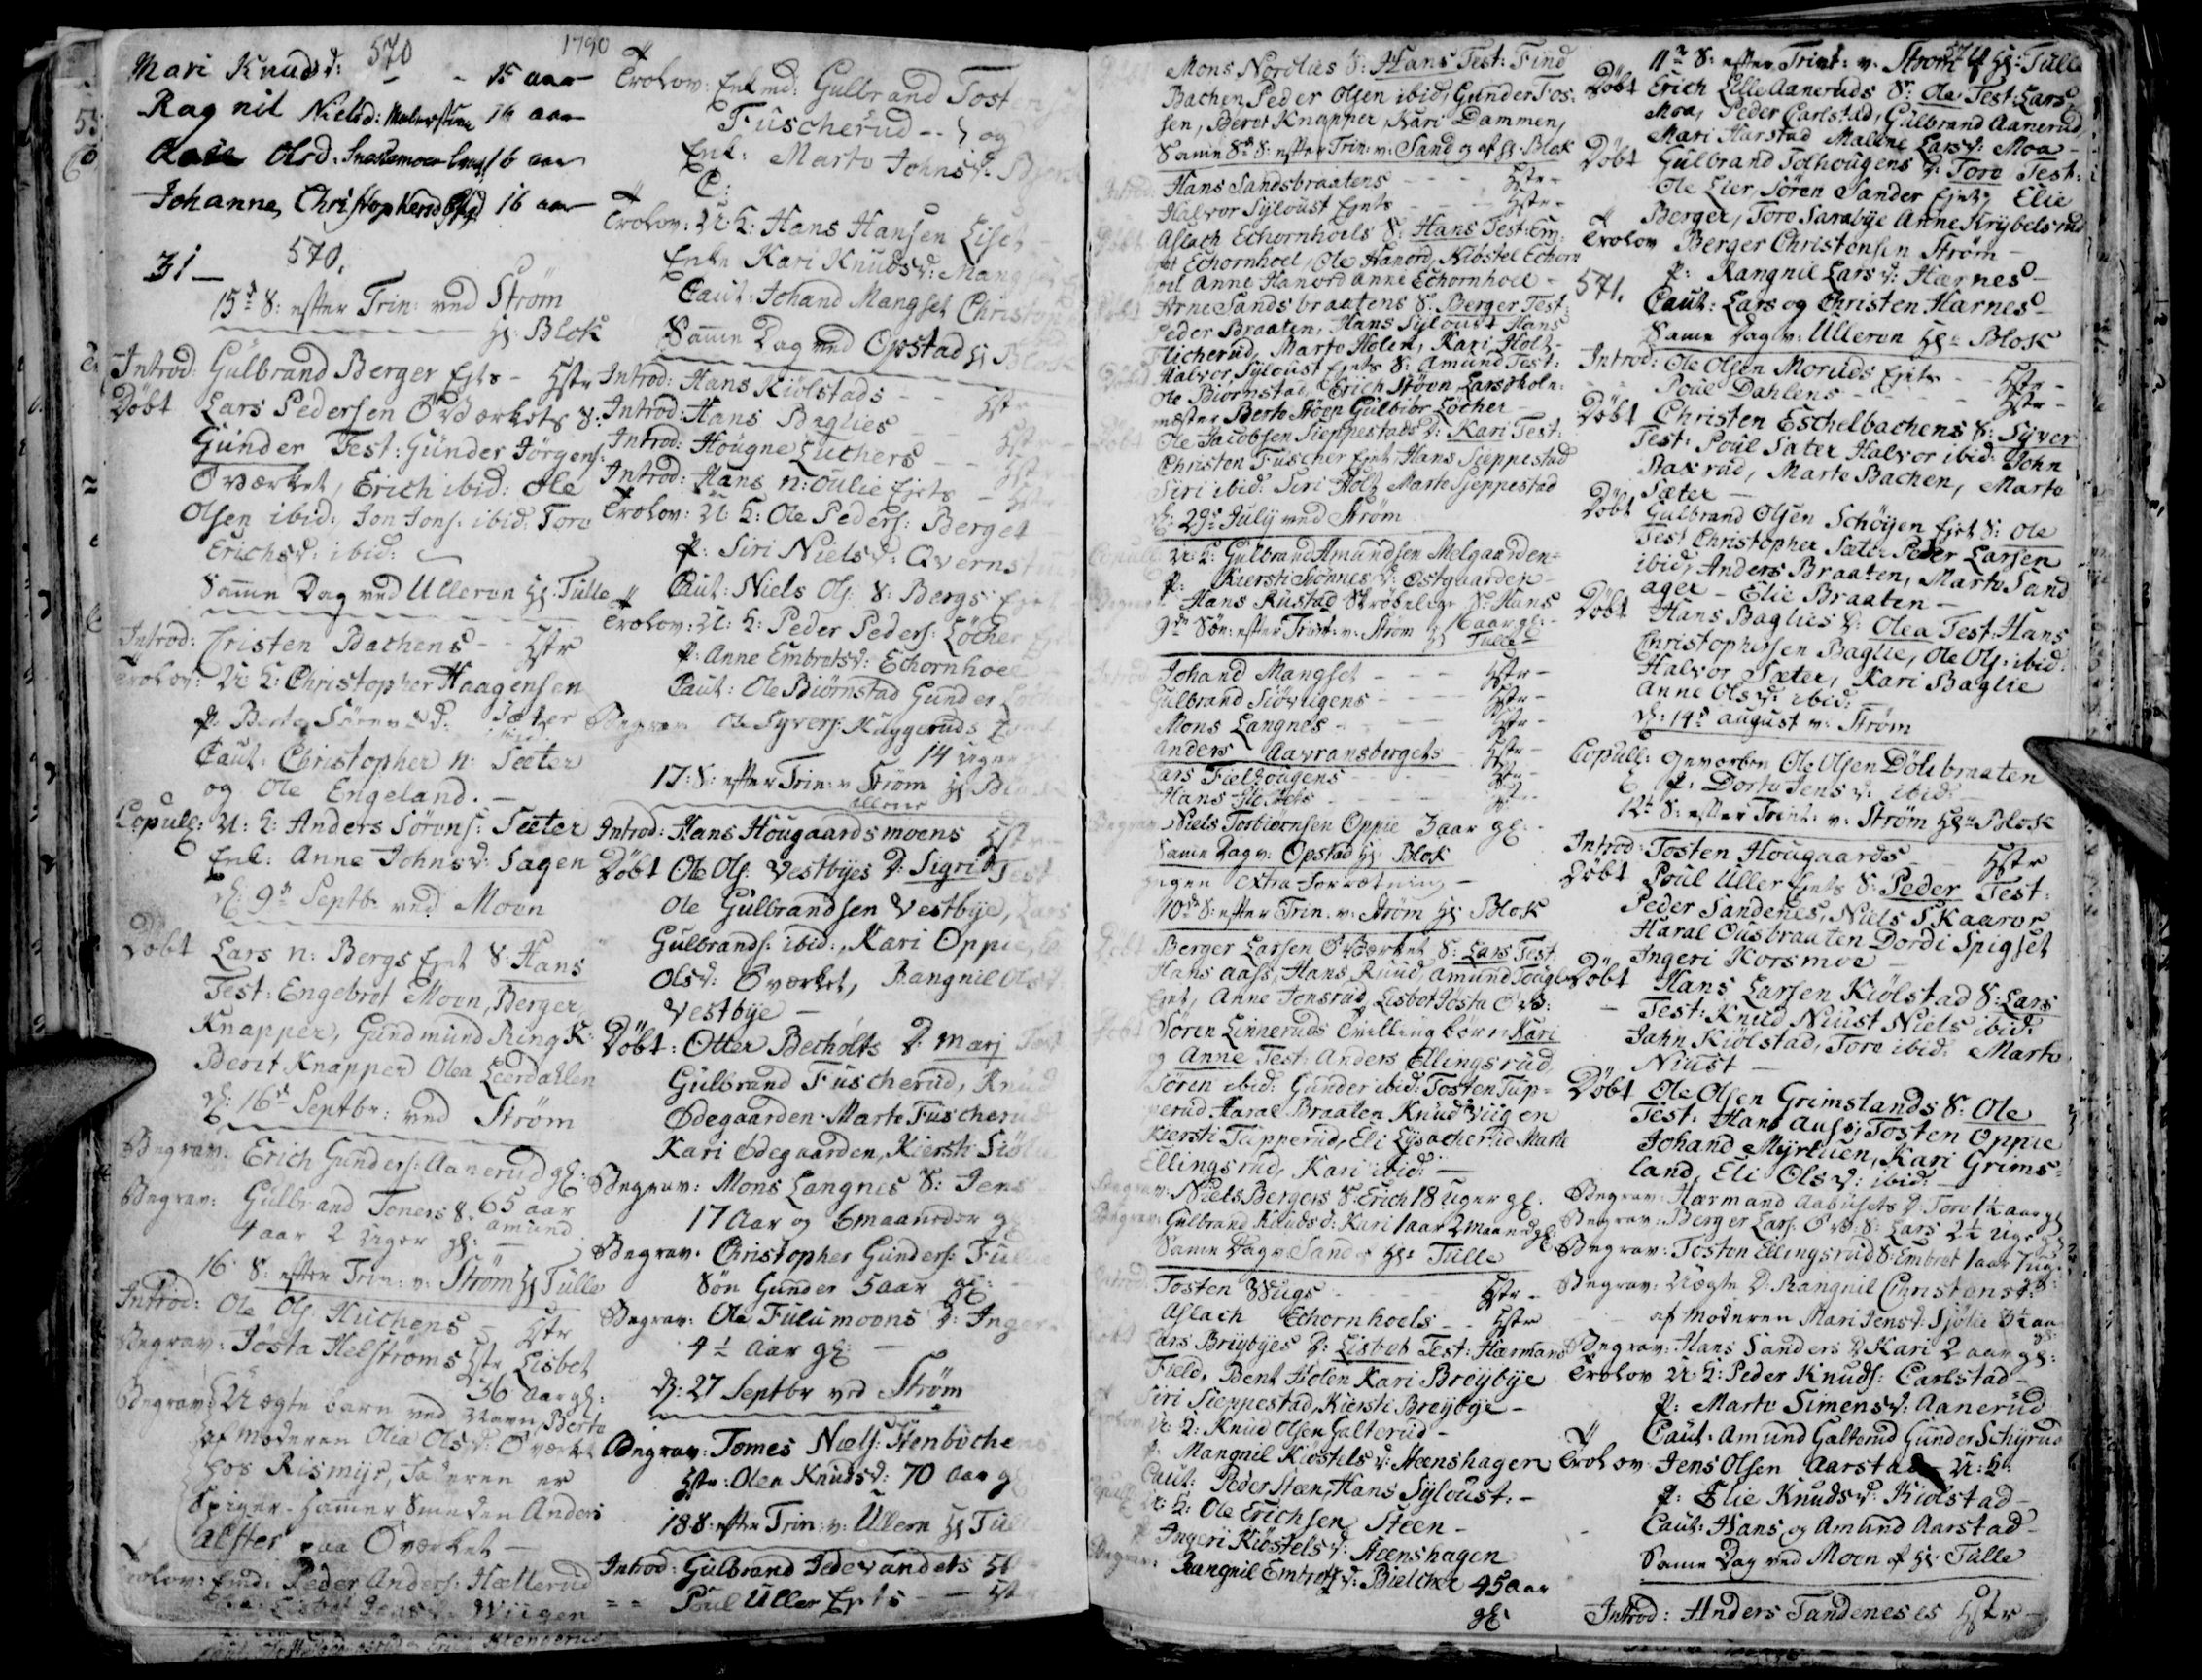 570
1790
Mari Knudsd: - - 15 aar
Ragnil Nielsd: 16 aar
Olsd: 16 aar
Johanne Christophersd 16 aar
31 — 570.
15de S: efter Trin: ved Strøm
Hr: Blok
Introd: Gulbrand Berger Ejets - Hstr
Døbt Lars Pedersen Odværkets S:
Gunder Test: Gunder Jørgens:
Odværket, Erich ibid: Ole
Olsen ibid:, Jon Jons: ibid: Toro
Erichsd: ibid:
Samme Dag ved Ulleren Hr: Tulle
Introd: Cristen Bachens - - Hstr
Trolov: U: K: Christopher Haagensen
P: Berte Sörensd: Sæter
Caut: Christopher n: Sæter
og Ole Engeland. —
Copul: U: K: Anders Sörens: Sæter
Enk: Anne Johnsd: Sagen
D: 9de Septbr ved Moen
Döbt Lars n: Bergs Ejet S: Hans
Test: Engebret Moen, Berger
Knapper, Gundmund Ring K:
Berit Knapper Olea Leerdahlen
D: 16de Septbr: ved Strøm
Begrav: Erich Gunders: Aanerud gl:
65 aar
Begrav: Gulbrand Toners S: Amund
4 aar 2 Uger gl: —
16 S: efter Trin: v: Strøm Hr Tulle
Introd: Ole Ols: Huchens - Hstr
Begrav: Josta Helströms Hstr Lisbet
36 aar gl:
Begrav: Uægte barn ved Navn Berte
af Moderen Olia Olsd: Odværket
hos Rismyr, Faderen er
Spiger-Hammer Smeden Anders
Alfter paa Odværket —
Trolov: Emd: Peder Anders: Hællerud
Lisbet Jensd: Wiigen
Trolov: Enkmd: Gulbrand Tosten
Fuscherud - - og
Enk: Marte Johnsd:
C:
Trolov: U: K: Hans Hansen Liset
Enke Kari Knudsd: Mang
Caut: Johand Mangset Christen
Samme Dag ved Opstad Hr Blok
Introd: Hans Kiölstads - - Hstr
Introd: Hans Baglies - - Hstr
Introd: Hougne Luchers - - Hstr
Introd: Hans n: Oulie Ejets - Hstr
Trolov: U: K: Ole Peders: Berget
P: Siri Nielsd: Qverns
Caut: Niels Ols: S: Bergs Ejet
Trolov: U: K: Peder Peders: Löcher
P: Anne Embretsd: Echornhoel
Caut: Ole Biörnstad Gunder Löcher
Begrav: Ole Syvers: Kuggeruds
14 Uger
17: S: efter Trin: v Strøm Hr Blok
Introd: Hans Hougaardsmoens Hstr -
Döbt Ole Ols: Vestbyes D: Sigri Test
Ole Gulbrandsen Vestbye, Lars
Gulbrands: ibid:, Kari Oppie,
Olsd: Odværket, Rangnil Olsd:
Vestbye —
Döbt: Otter Becholts D: Marj Test
Gulbrand Fuscherud, Knud
Ødegaarden, Marte Fuscherud
Kari Ødegaarden, Kiersti Siölie
Begrav: Mons Langnes S: Jens
17 Aar og 6 maaneder gl:
Begrav: Christopher Gunders: Fulu
Sön Gunder 5 aar gl: -
Begrav: Ole Fulumoens D: Inger
4 ½ Aar gl: —
D: 27 Septbr ved Strøm
Begrav: Tomes Niels: Stenböchens
Hstr: Olea Knudsd: 70 aar gl
18 S: efter Trin: v: Ullern Hr Tulle
Introd: Gulbrand Jedevandets Hstr
= = Poul Uller Ejets - - Hstr
Mons Nordlies S: Hans Test: Find
Bachen, Peder Olsen ibid, Gunder Tos:
sen, Beret Knapper, Kari Dammen,
Samme 8de S: efter Trin: v: Sand og af Hr Blok
Introd: Hans Sandsbraatens - - - Hstr -
Halvor Syloust Ejets - - - Hstr -
Döbt Aslach Echornhoels S: Hans Test: Em:
bret Echornhoel, Ole Hanord, Kiöstel Echorn
hoel Anne Hanord Anne Echornhoel -
Döbt Arne Sandsbraatens S: Berger Test:
Peder Braaten, Hans Syloust Hans
Flicherud, Marte Holen, Kari Holt -
Döbt Halvor Syloust Ejets S: Amund Test:
Ole Biörnstad, Erich Støen Lars Skole:
mester Berte Støen Gulbior Löcher -
Döbt Ole Jacobsen Sieppestads D: Kari Test:
Christen Fuscher Ejet, Hans Sieppestad
Siri ibid: Siri Holt Marte Sieppestad
D: 29de July ved Strøm
Copull: U: K: Gulbrand Amundsen Melgaarden -
P: Kiersti Tönnesd: Østgaarden -
Begrav: Hans Rustad Strøbelige S: Hans
16 aar gl: -
9de Søn: efter Trin: v: Strøm Hr Tulle
Introd: Johand Mangset - - - Hstr -
Gulbrand Siövigens - - - Hstr -
Mons Langnes - - - Hstr -
Anders Aavransbergets - Hstr -
Lars Fielhougens - - Hstr -
Hans - - - Hstr -
Begrav: Niels Torbiörnsen Oppie 3 aar gl: -
Samme Dag v: Opstad Hr: Blok
Ingen Extra Forretning —
10de S: efter Trin: v: Strøm Hr Blok
Döbt Berger Larsen Odværket S: Lars Test:
Hans Aass, Hans Ruud, Amund Tougl
Ejet, Anne Jonsrud, Lisbet Josta Odv:
Döbt Sören Linneruds Tvillingbörn Kari
og Anne Test: Anders Ellingsrud
Sören ibid: Gunder ibid: Tosten Tup=
perud Haral Braaten Knud Viigen
Kiersti Tupperud, Eli Lysacherud Marte
Ellingsrud, Kari ibid: —
Begrav: Niels Bergers S: Erich 18 Uger gl:
Begrav: Gulbrand Knudsd: Kari 1 aar 2 maaned gl:
Samme Dag v: Sand Hr: Tulle
Introd: Tosten Wiigs - - Hstr -
Aslach Echornhoels - - Hstr
Döbt Lars Breybyes D: Lisbet Test: Hærmand
Field, Bent Holen Kari Breybye
Siri Sieppestad, Kiersti Breybye -
Trolov: U: K: Knud Olsen Galterud -
P: Mangnil Kiöstelsd: Steenshagen
Caut: Peder Steen, Hans Syloust. -
U: K: Ole Erichsen Steen -
P: Ingeri Kiöstelsd: Steenshagen
Begrav: Rangnil Embretsd: Bielcher 45 aar
gl:
571
11te S: efter Trint: v: Strøm Hr: Tulle
Döbt Erich Lille Aaneruds S: Ole Test: Lars
Moa, Peder Carlstad, Gulbrand Aanerud,
Mari Harstad Malene Larsd: Moa -
Döbt Gulbrand Tolhougens D: Toro Test:
Ole Lier, Sören Sander Ejet, Elie
Berger, Toro Sarabye Anne Krybelsrud
Trolov Berger Christensen Strøm -
P: Rangnil Larsd: Hærnes -
571. Caut: Lars og Christen Harnes -
Samme Dag v: Ulleren Hr: Blok
Introd: Ole Olsen Moruds Ejets - Hstr -
Poul Dahlens - - - Hstr -
Döbt Christen Eschelbachens S: Syver
Test: Poul Sæter Halvor ibid: John
Staxrud, Marte Bachen, Marte
Sæter —
Döbt Gulbrand Olsen Schöyen Ejet S: Ole
Test Christopher Sæter Peder Larsen
ibid, Anders Braaten, Marte Sand
ager - Elie Braaten —
Döbt Hans Baglies D: Olea Test: Hans
Christophersen Baglie, Ole Ols: ibid:
Halvor Sæter, Kari Baglie
Anne Olsd: ibid:
D: 14de August v: Strøm
Copull: Gevorben Ole Olsen Dölibraaten
P: Dorte Jensd: ibid: -
12te S: efter Trint: v: Strøm Hr: Blok
Introd: Tosten Hougaards - Hstr
Döbt Poul Uller Ejets S: Peder Test:
Peder Sandenes, Niels Skaaror
Haral Ousbraaten Dordi Spigset
Ingeri Korsmoe —
Döbt Hans Larsen Kiölstad S: Lars
Test: Knud Niust Niels ibid:
Jahn Kiölstad, Toro ibid: Marte
Niust —
Döbt Ole Olsen Grimstands S: Ole
Test: Hans Aass, Tosten Oppie
Johand Myrluen, Kari Grims=
land, Eli Olsd: ibid: —
Begrav: Hærmand Aabusets D: Toro 1½ aar gl
Begrav: Berger Lars: Odv: S: Lars 2½ Uge gl
Begrav: Tosten Ellingsrud S: Embret 1 aar 7 ug:
Begrav: Uægte D: Rangnil Christensd:
af Moderen Mari Jensd: Sjölie 3½ aar
gl:
Begrav: Hans Sanders D: Kari 2 aar gl:
Trolov U: K: Peder Knuds: Carlstad -
P: Marte Simensd: Aanerud
Caut: Amund Galterud Gunder Schyrud
Trolov Jens Olsen Aarstad U: K:
P: Elie Knudsd: Kiolstad -
Caut: Hans og Amund Aarstad -
Samme Dag ved Moen af Hr: Tulle
Introd: Anders Tandeneses Hstr -